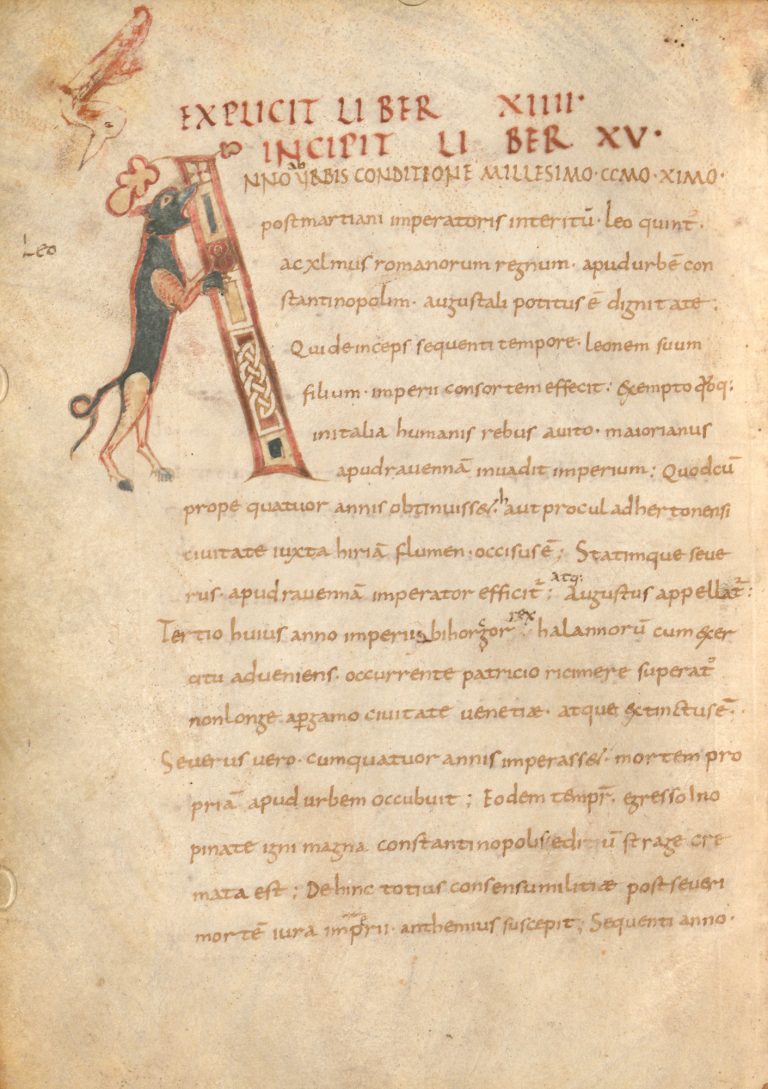 EXPLICIT LIBER XIIII·
INCIPIT LIBER XV·
ANNO ab VRBIS CONDITIONE MILLESIMO·CCMO·XIMO·
post martiani imperatoris interitū· leo quint᷒·
Leo
ac xlmus romanorum regnum· apud urbē con
stantinopolim· augustali potitus ē dignitate;
Qui deinceps sequenti tempore· leonem suum
filium· imperii consortem effecit; exempto
in italia humanis rebus auito· maiorianus
apud ravennā invadit imperium; Quod cū
prope quatuor annis obtinuisset· haut procul ad hertonensi
civitate iuxta hiriā flumen· occisus ē; Statimque seve
rus· apud ravennā imperator efficit᷒; atq; Augustus appellat᷒:
Tertio huius anno imperii bihorgor rex halannorū cum exer
citu adveniens· occurrente patricio ricimere superat᷒
non longe a pgamo civitate venetiæ· atque extinctus ē·
Severus vero· cum quatuor annis imperasset· mortem pro
priā apud urbem occubuit; Eodem tempr̄· egresso Ino
pinate igni magna constantinopolis edit iū strage cre
mata est; De hinc totius consensu militiæ post severi
mortē iura imprii· anthemius suscepit; Sequenti anno·